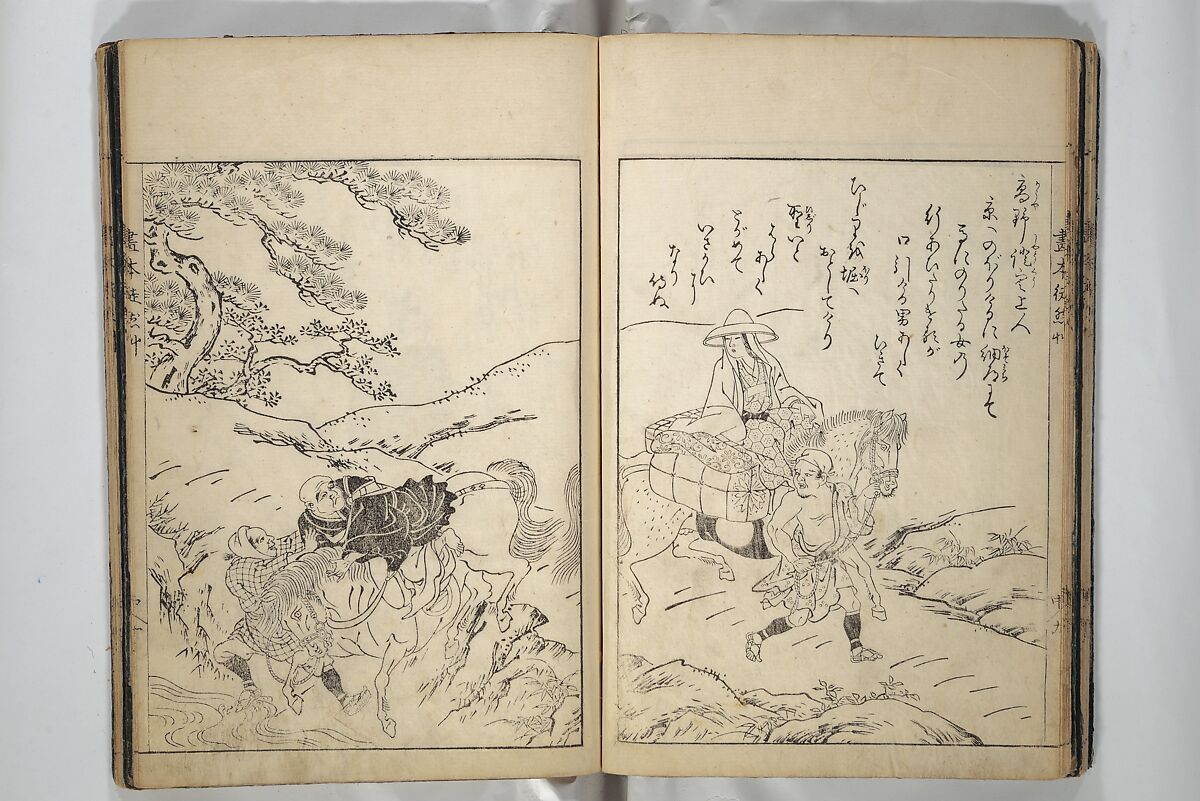 畫本徒然艸
高野證空上人
京へのぼりけるに細道にて
馬にのりたる女の
行あいたりけるが
口引ける男あしく
ひきて
ひじりの馬を堀へ
おとしてけり
聖いと
はらあしく
とがめて
いさかい
に
なり
侍ぬ
畫本徒然艸